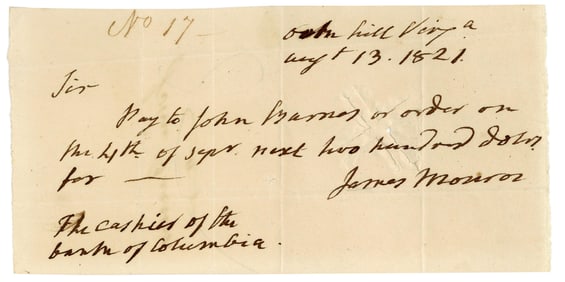 No 17
oak hill Virga.
augt 13. 1821.
Sir
Pay to John Barnes or order on
the 4th. of sepr. next two hundred dolrs.
for —
James Monroe
The cashier of the
bank of Columbia.